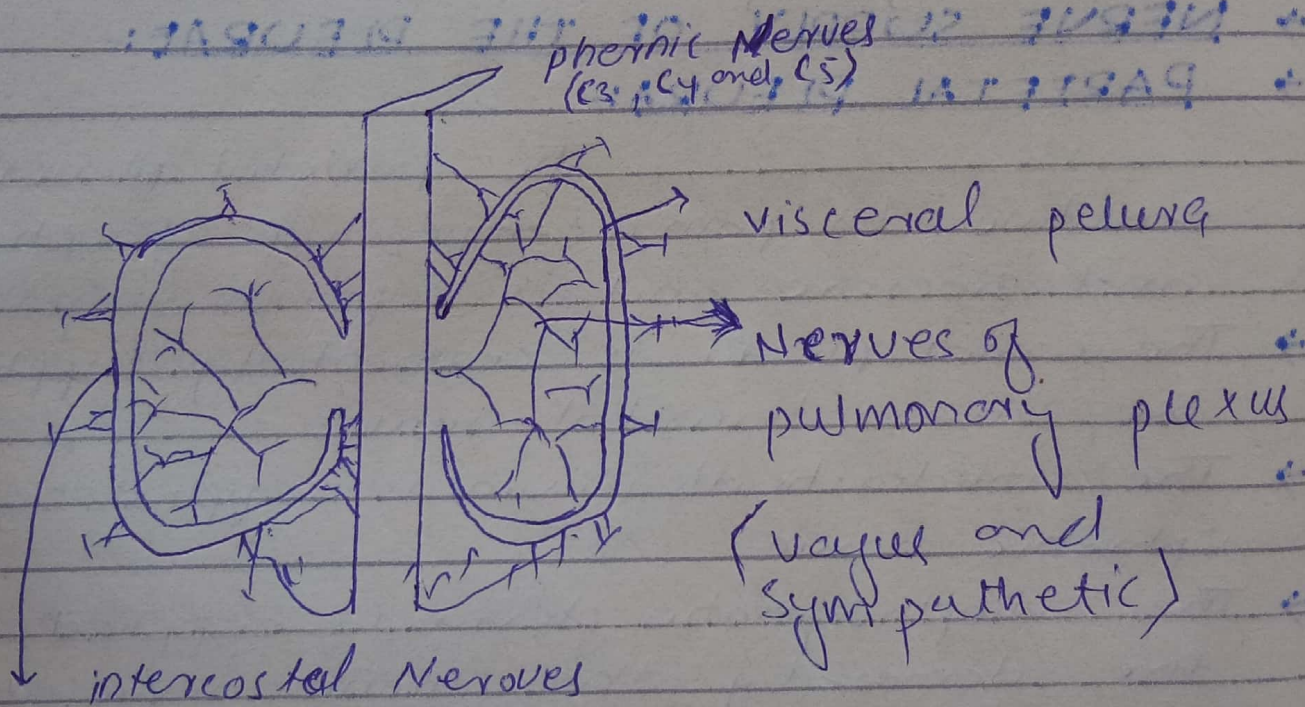 phernic Nerves
(C3, C4 and C5)
visceral pelura
Nerves of
pulmonary plexus
(vagus and
sympathetic)
intercostal Neroves